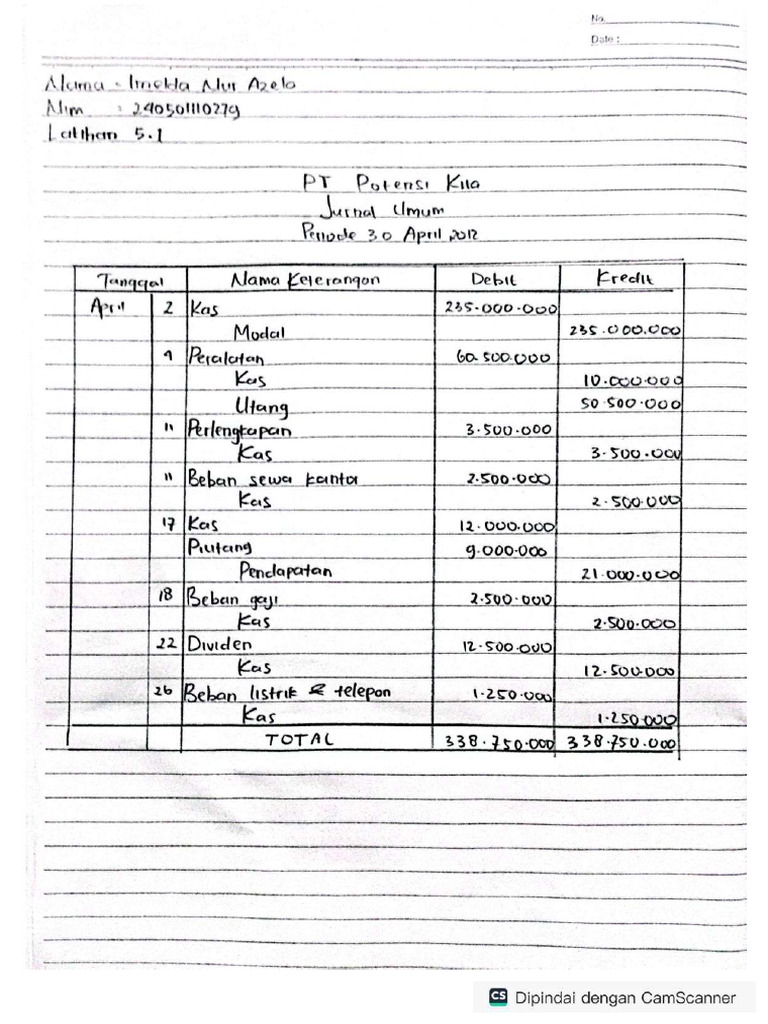 No.
Date :
Nama : Imelda Nur Azela
Nim : 240501110279
Latihan 5.1
PT Potensi Kita
Jurnal Umum
Periode 30 April 2012
Tanggal Nama Keterangan Debit Kredit
April 2 Kas 235.000.000
Modal 235.000.000
9 Peralatan 60.500.000
Kas 10.000.000
Utang 50.500.000
11 Perlengkapan 3.500.000
Kas 3.500.000
11 Beban sewa kantor 2.500.000
Kas 2.500.000
17 Kas 12.000.000
Piutang 9.000.000
Pendapatan 21.000.000
18 Beban gaji 2.500.000
Kas 2.500.000
22 Dividen 12.500.000
Kas 12.500.000
26 Beban listrik & telepon 1.250.000
Kas 1.250.000
TOTAL 338.750.000 338.750.000
CS Dipindai dengan CamScanner